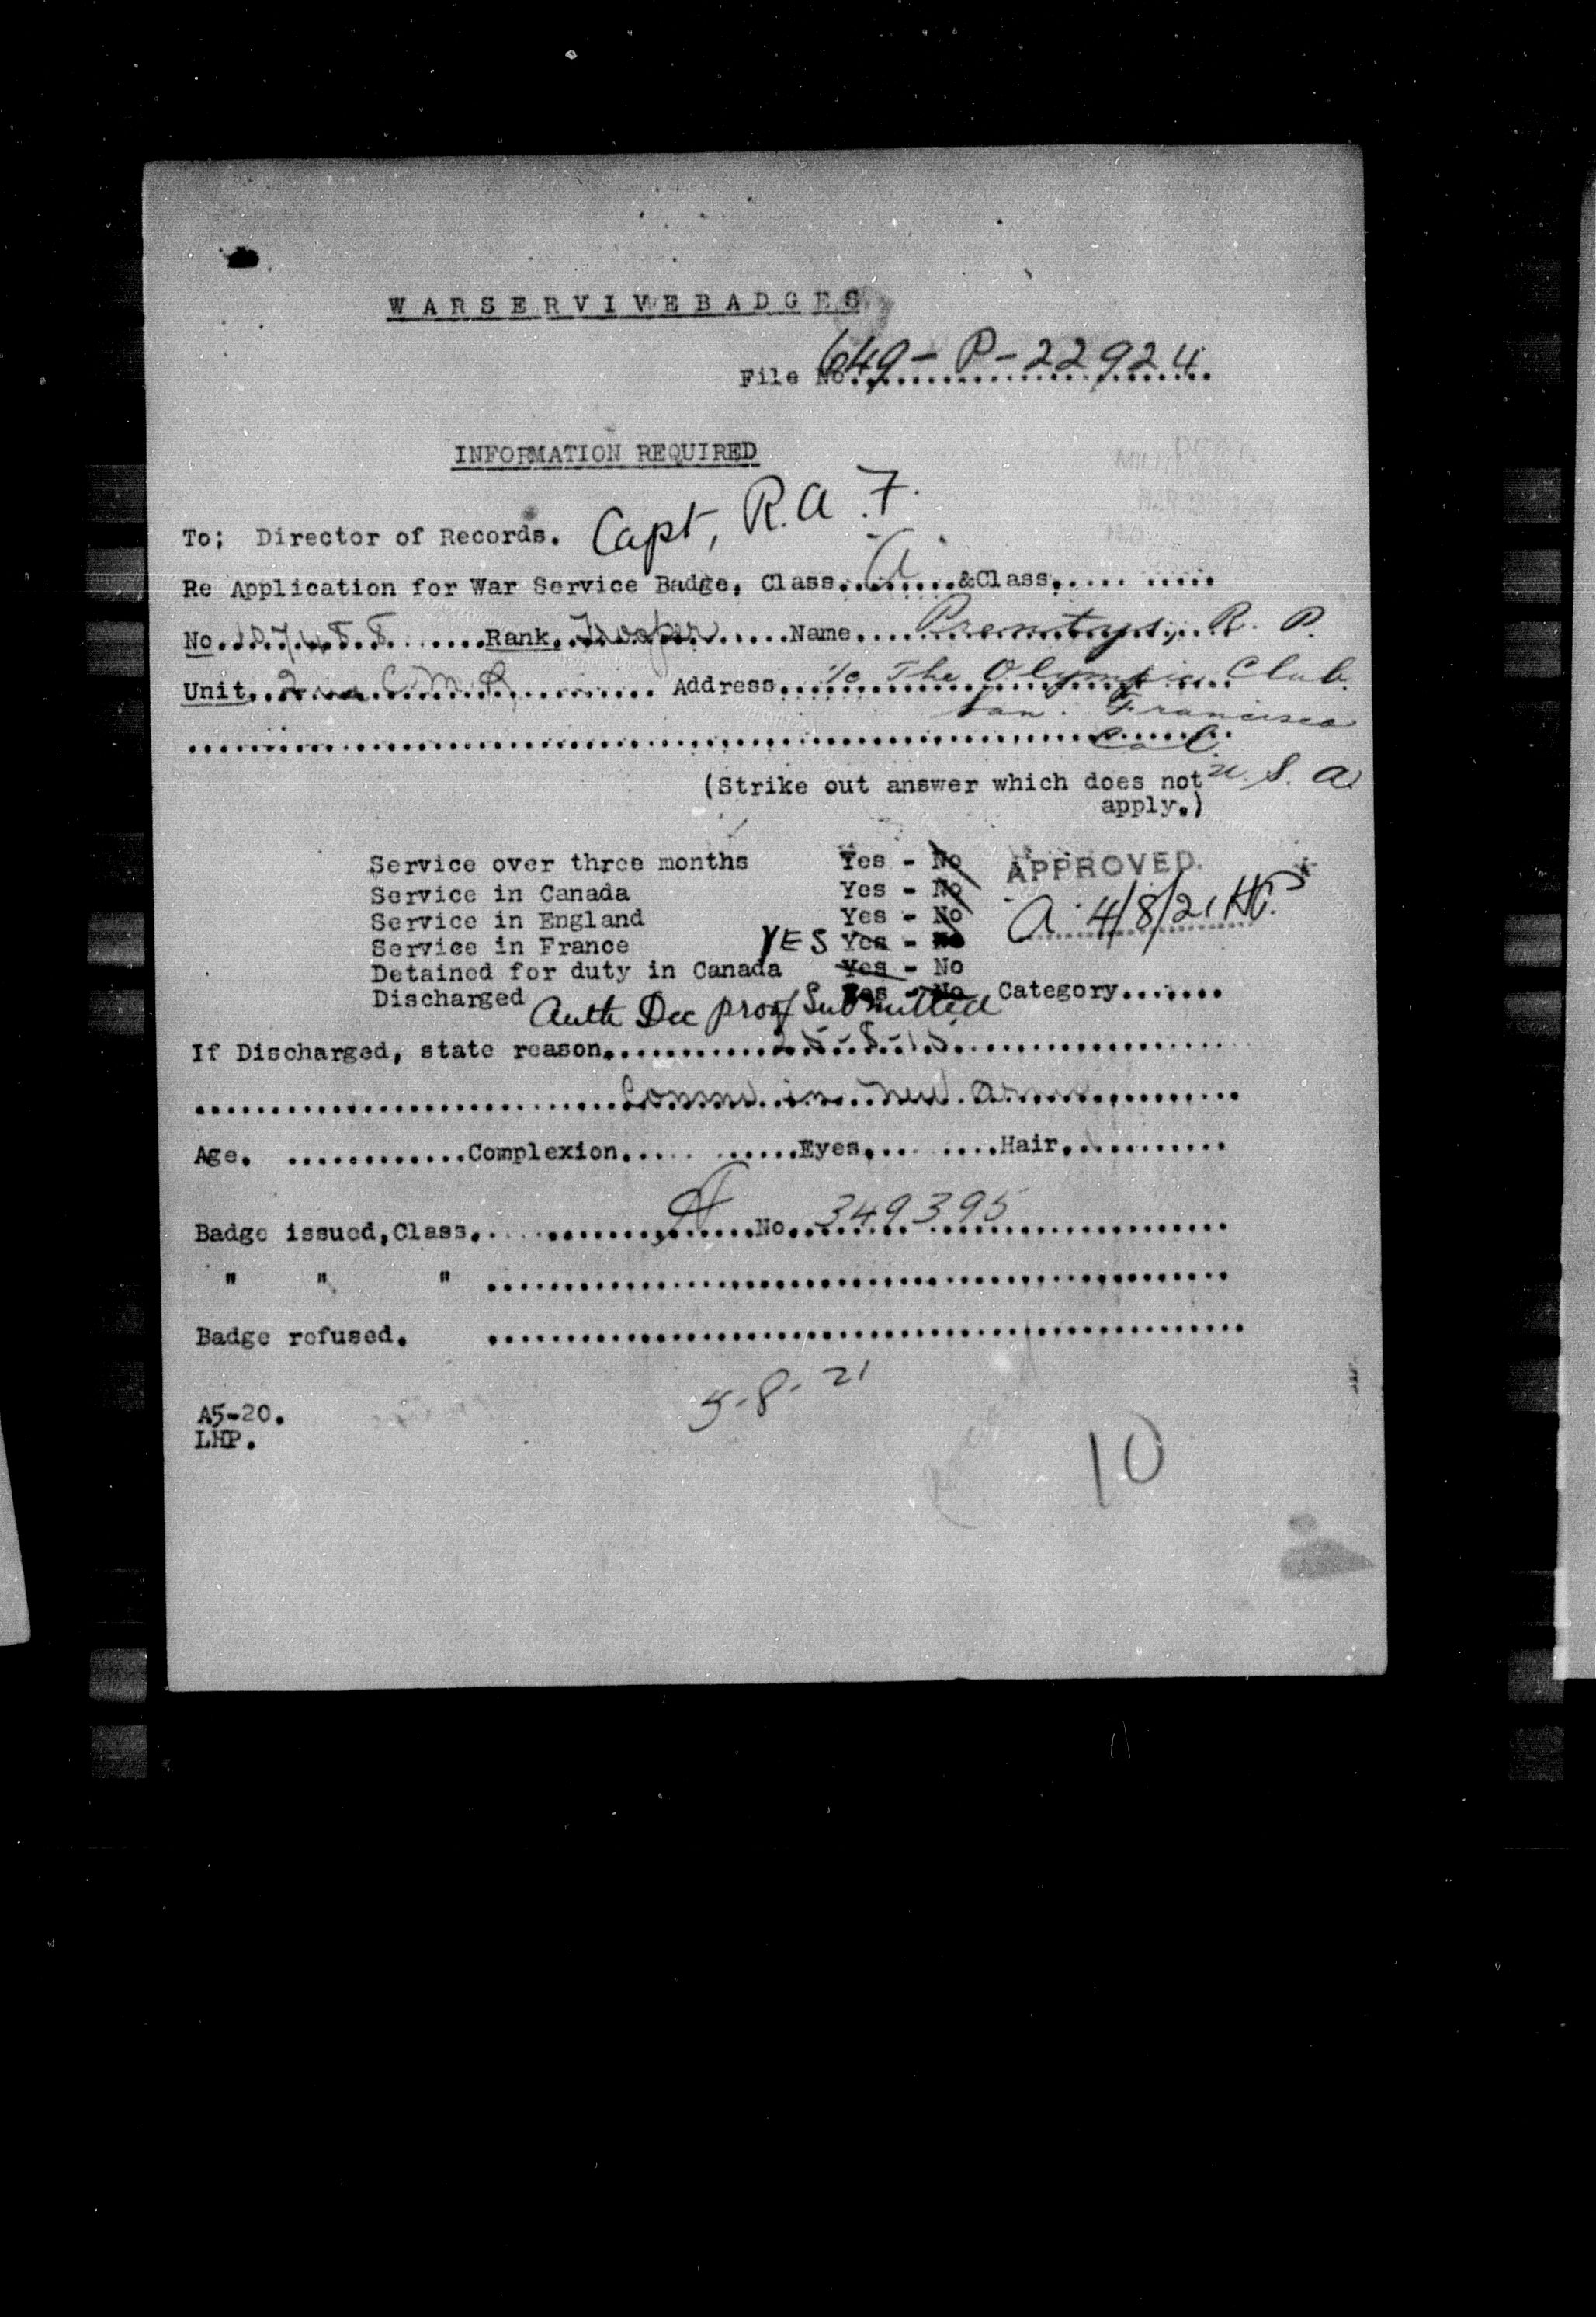 W A R S E R V I V E B A D G E S
File No. 649-P-22924
INFORMATION REQUIRED
To; Director of Records. Capt, R.A.F.
Re Application for War Service Badge, Class. A &Class.
No. 107488 Rank. Trooper Name. Prentys, R. P.
Unit. 2nd C.M.R. Address. c/o The Olympic Club
San. Francisco
Cal
U.S.A
(Strike out answer which does not
apply.)
Service over three months Yes - No
Service in Canada Yes - No
Service in England Yes - No
Service in France YES Yes - No
Detained for duty in Canada Yes - No
Discharged Yes - No Category
APPROVED.
A 4/8/21
Auth Dec proof Submitted
If Discharged, state reason. 25-8-15
Comm. in
Age. Complexion. Eyes. Hair.
Badge issued, Class. A No. 349395
" " "
Badge refused.
5-8-21
A5-20.
LHP.
10